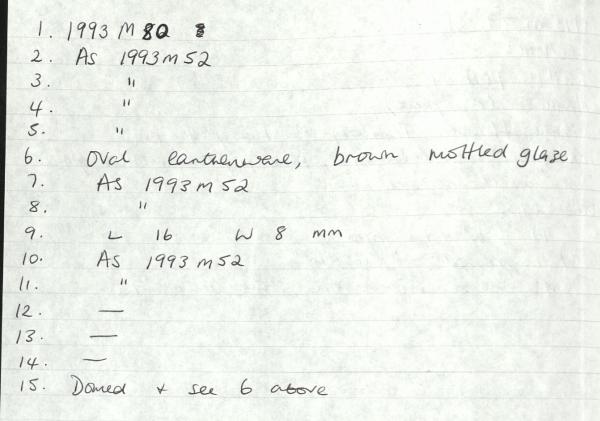 1. 1993 M 80
2. As 1993 M 52
3. "
4. "
5. "
6. Oval earthenware, brown mottled glaze
7. As 1993 M 52
8. "
9. L 16 W 8 mm
10. As 1993 M 52
11. "
12. —
13. —
14. —
15. Domed + see 6 above